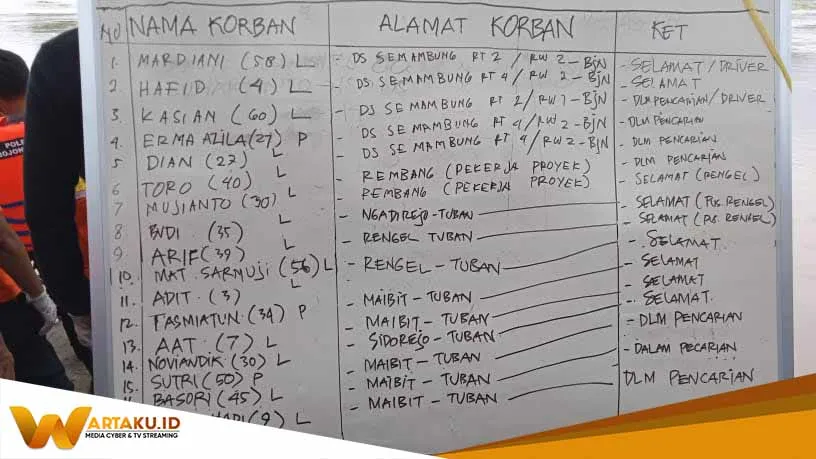 NO NAMA KORBAN ALAMAT KORBAN KET
1. MARDIANI (58) L - DS SEMAMBUNG RT 2 / RW 2 - BJN - SELAMAT / DRIVER
2. HAFID (4) L - DS SEMAMBUNG RT 4 / RW 2 - BJN - SELAMAT
3. KASIAN (60) L - DS SEMAMBUNG RT 2 / RW 1 - BJN - DLM PENCARIAN / DRIVER
4. ERMA AZILA (27) P - DS SEMAMBUNG RT 4 / RW 2 - BJN - DLM PENCARIAN
5 DIAN (27) L - DS SEMAMBUNG RT 4 / RW 2 - BJN - DLM PENCARIAN
6 TORO (40) L - REMBANG (PEKERJA PROYEK) - DLM PENCARIAN
7 MUJIANTO (30) L - REMBANG (PEKERJA PROYEK) - SELAMAT (RENGEL)
8 BUDI (35) L - NGADIREJO - TUBAN - SELAMAT (PUS. RENGEL)
9 ARIF (39) L - RENGEL TUBAN - SELAMAT (PS. RENGEL)
10. MAT. SARMUJI (56) L - RENGEL - TUBAN - SELAMAT
11. ADIT. (3) L - MAIBIT - TUBAN - SELAMAT
12. TASMIATUN. (34) P - MAIBIT - TUBAN - SELAMAT
13. AAT. (7) L - SIDOREJO - TUBAN - SELAMAT
14. NOVIANDIK (30) L - MAIBIT - TUBAN - DLM PENCARIAN
15. SUTRI (50) P - MAIBIT - TUBAN - DALAM PECARIAN
BASORI (45) L - MAIBIT - TUBAN DLM PENCARIAN
(9) L
WARTAKU.ID
MEDIA CYBER & TV STREAMING